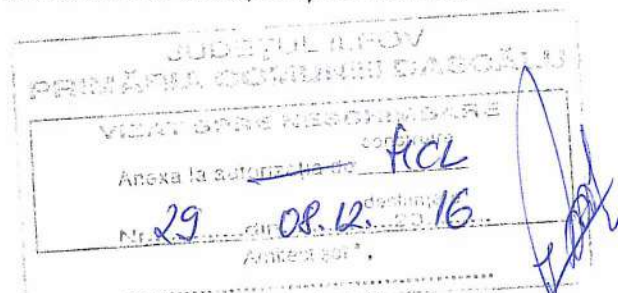 JUDEȚUL ILFOV
PRIMĂRIA COMUNEI DASCĂLU
VIZAT SPRE NESCHIMBARE
construire
Anexa la autorizația de HCL
desființare
Nr. 29 din 08.12. 2016
Arhitect șef